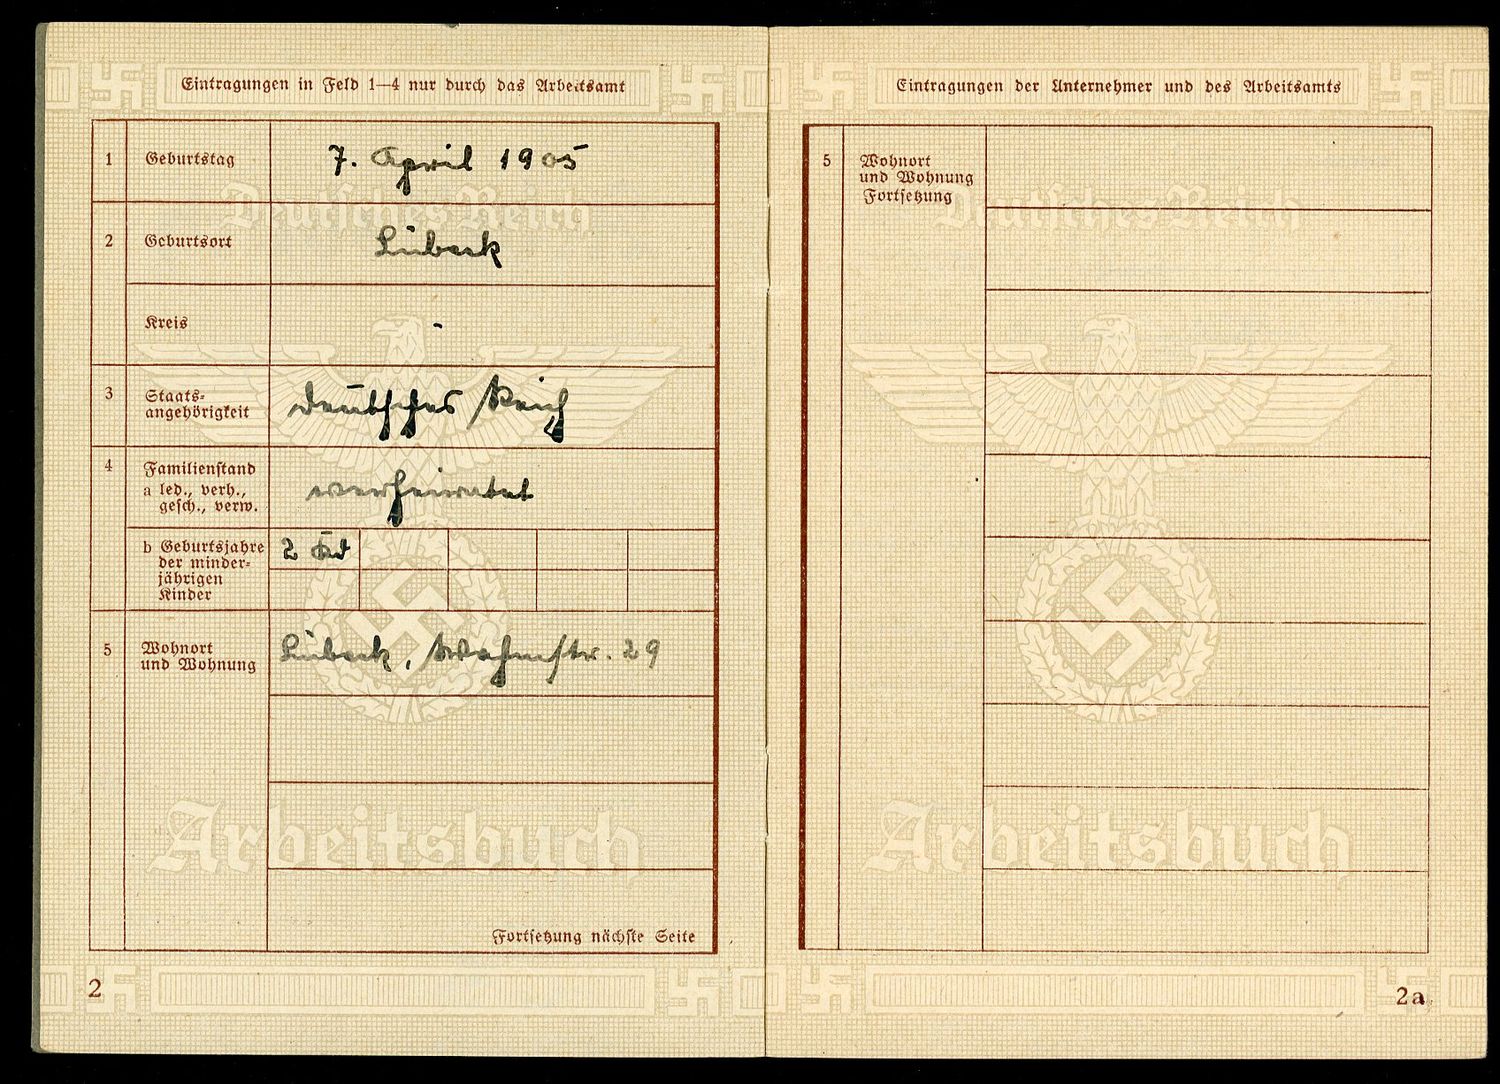 Eintragungen in Feld 1—4 nur durch das Arbeitsamt
1 Geburtstag 7. April 1905
Deutsches Reich
2 Geburtsort Lübeck
Kreis -
3 Staats-
angehörigkeit Deutsches Reich
4 Familienstand
a led., verh.,
gesch., verw. verheiratet
b Geburtsjahre
der minder-
jährigen
Kinder 2
5 Wohnort
und Wohnung Lübeck, Wahmstr. 29
Arbeitsbuch
Fortsetzung nächste Seite
2
Eintragungen der Unternehmer und des Arbeitsamts
5 Wohnort
und Wohnung
Fortsetzung
Deutsches Reich
Arbeitsbuch
2a